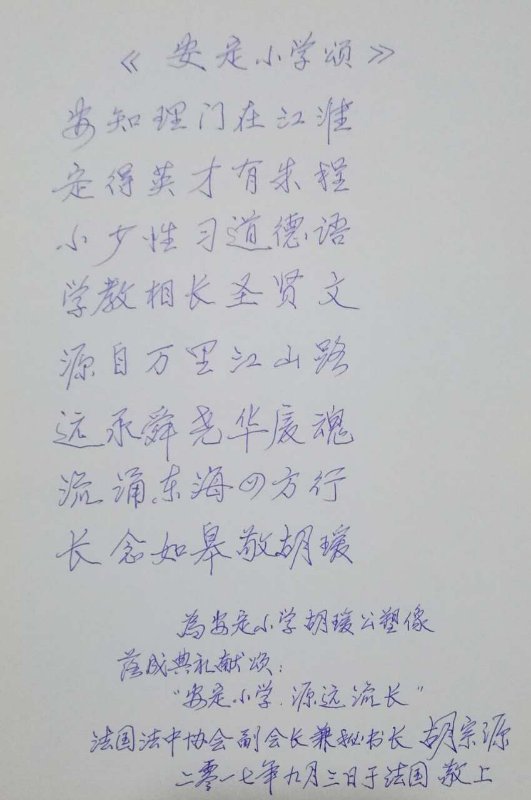 《安定小学颂》
安知理门在江淮
定得英才有朱程
小少性习道德语
学教相长圣贤文
源自万里江山路
远承舜尧华夏魂
流涌东海四方行
长念如皋敬胡瑗
为安定小学胡瑗公塑像
落成典礼献颂:
"安定小学.源远流长"
法国法中协会副会长兼秘书长 胡宗源
二零一七年九月三日于法国 敬上